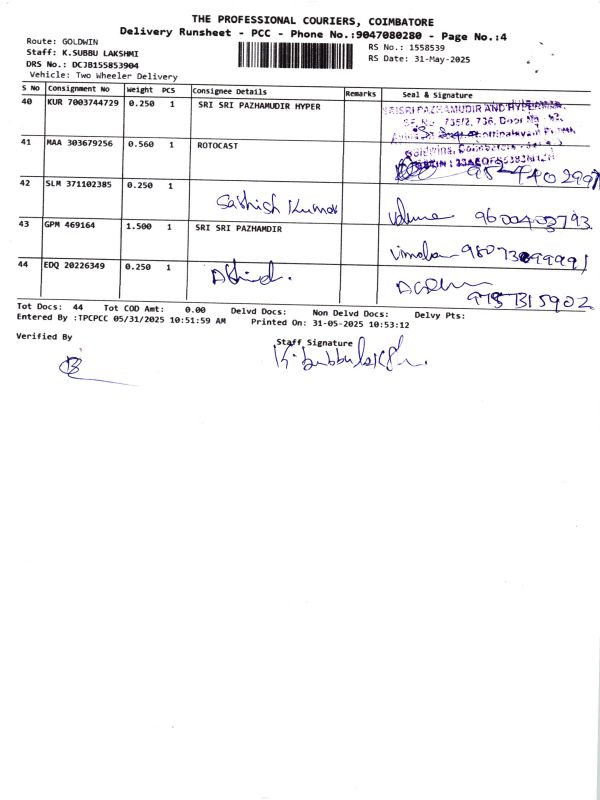 THE PROFESSIONAL COURIERS, COIMBATORE
Delivery Runsheet - PCC - Phone No.:9047080280 - Page No.:4
Route: GOLDWIN
RS No.: 1558539
Staff: K.SUBBU LAKSHMI
RS Date: 31-May-2025
DRS No.: DCJB155853904
Vehicle: Two Wheeler Delivery
S No Consignment No Weight PCS Consignee Details Remarks Seal & Signature
40 KUR 7003744729 0.250 1 SRI SRI PAZHAMUDIR HYPER
41 MAA 303679256 0.560 1 ROTOCAST
42 SLM 371102385 0.250 1
Sathish Kumar 9600403793
43 GPM 469164 1.500 1 SRI SRI PAZHAMDIR
44 EDQ 20226349 0.250 1
Tot Docs: 44 Tot COD Amt: 0.00 Delvd Docs: Non Delvd Docs: Delvy Pts:
Entered By :TPCPCC 05/31/2025 10:51:59 AM Printed On: 31-05-2025 10:53:12
Verified By
Staff Signature
K. Subbulakshmi